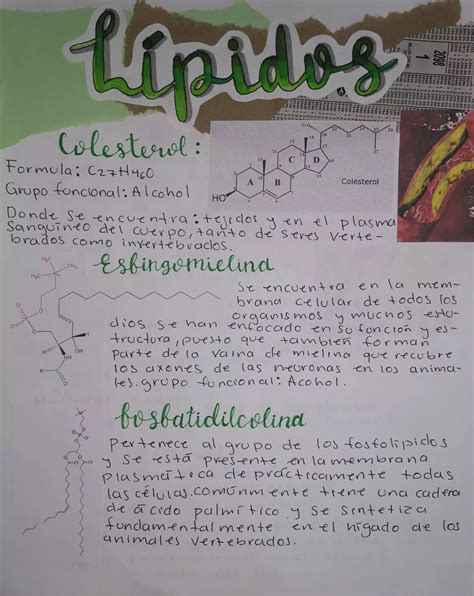 Lípidos
Colesterol:
Formula: C27H46O
Grupo foncional: Alcohol
Donde se encuentra: tejidos y en el plasma
sanguíneo del cuerpo, tanto de seres verte-
brados como invertebrados.
A B C D
HO
Colesterol
Esbingomielina
Se encuentra en la mem-
brana celular de todos los
organismos y muchos estu-
dios se han enfocado en su función y es-
tructura, puesto que también forman
parte de la vaina de mielina que recubre
los axones de las neuronas en los anima-
les. grupo funcional: Acohol.
bosbatidilcolina
pertenece al grupo de los fosfolípidos
y se está presente en la membrana
plasmática de prácticamente todas
las células. comúnmente tiene una cadena
de ácido palmítico y se sintetiza
fundamentalmente en el hígado de los
animales vertebrados.